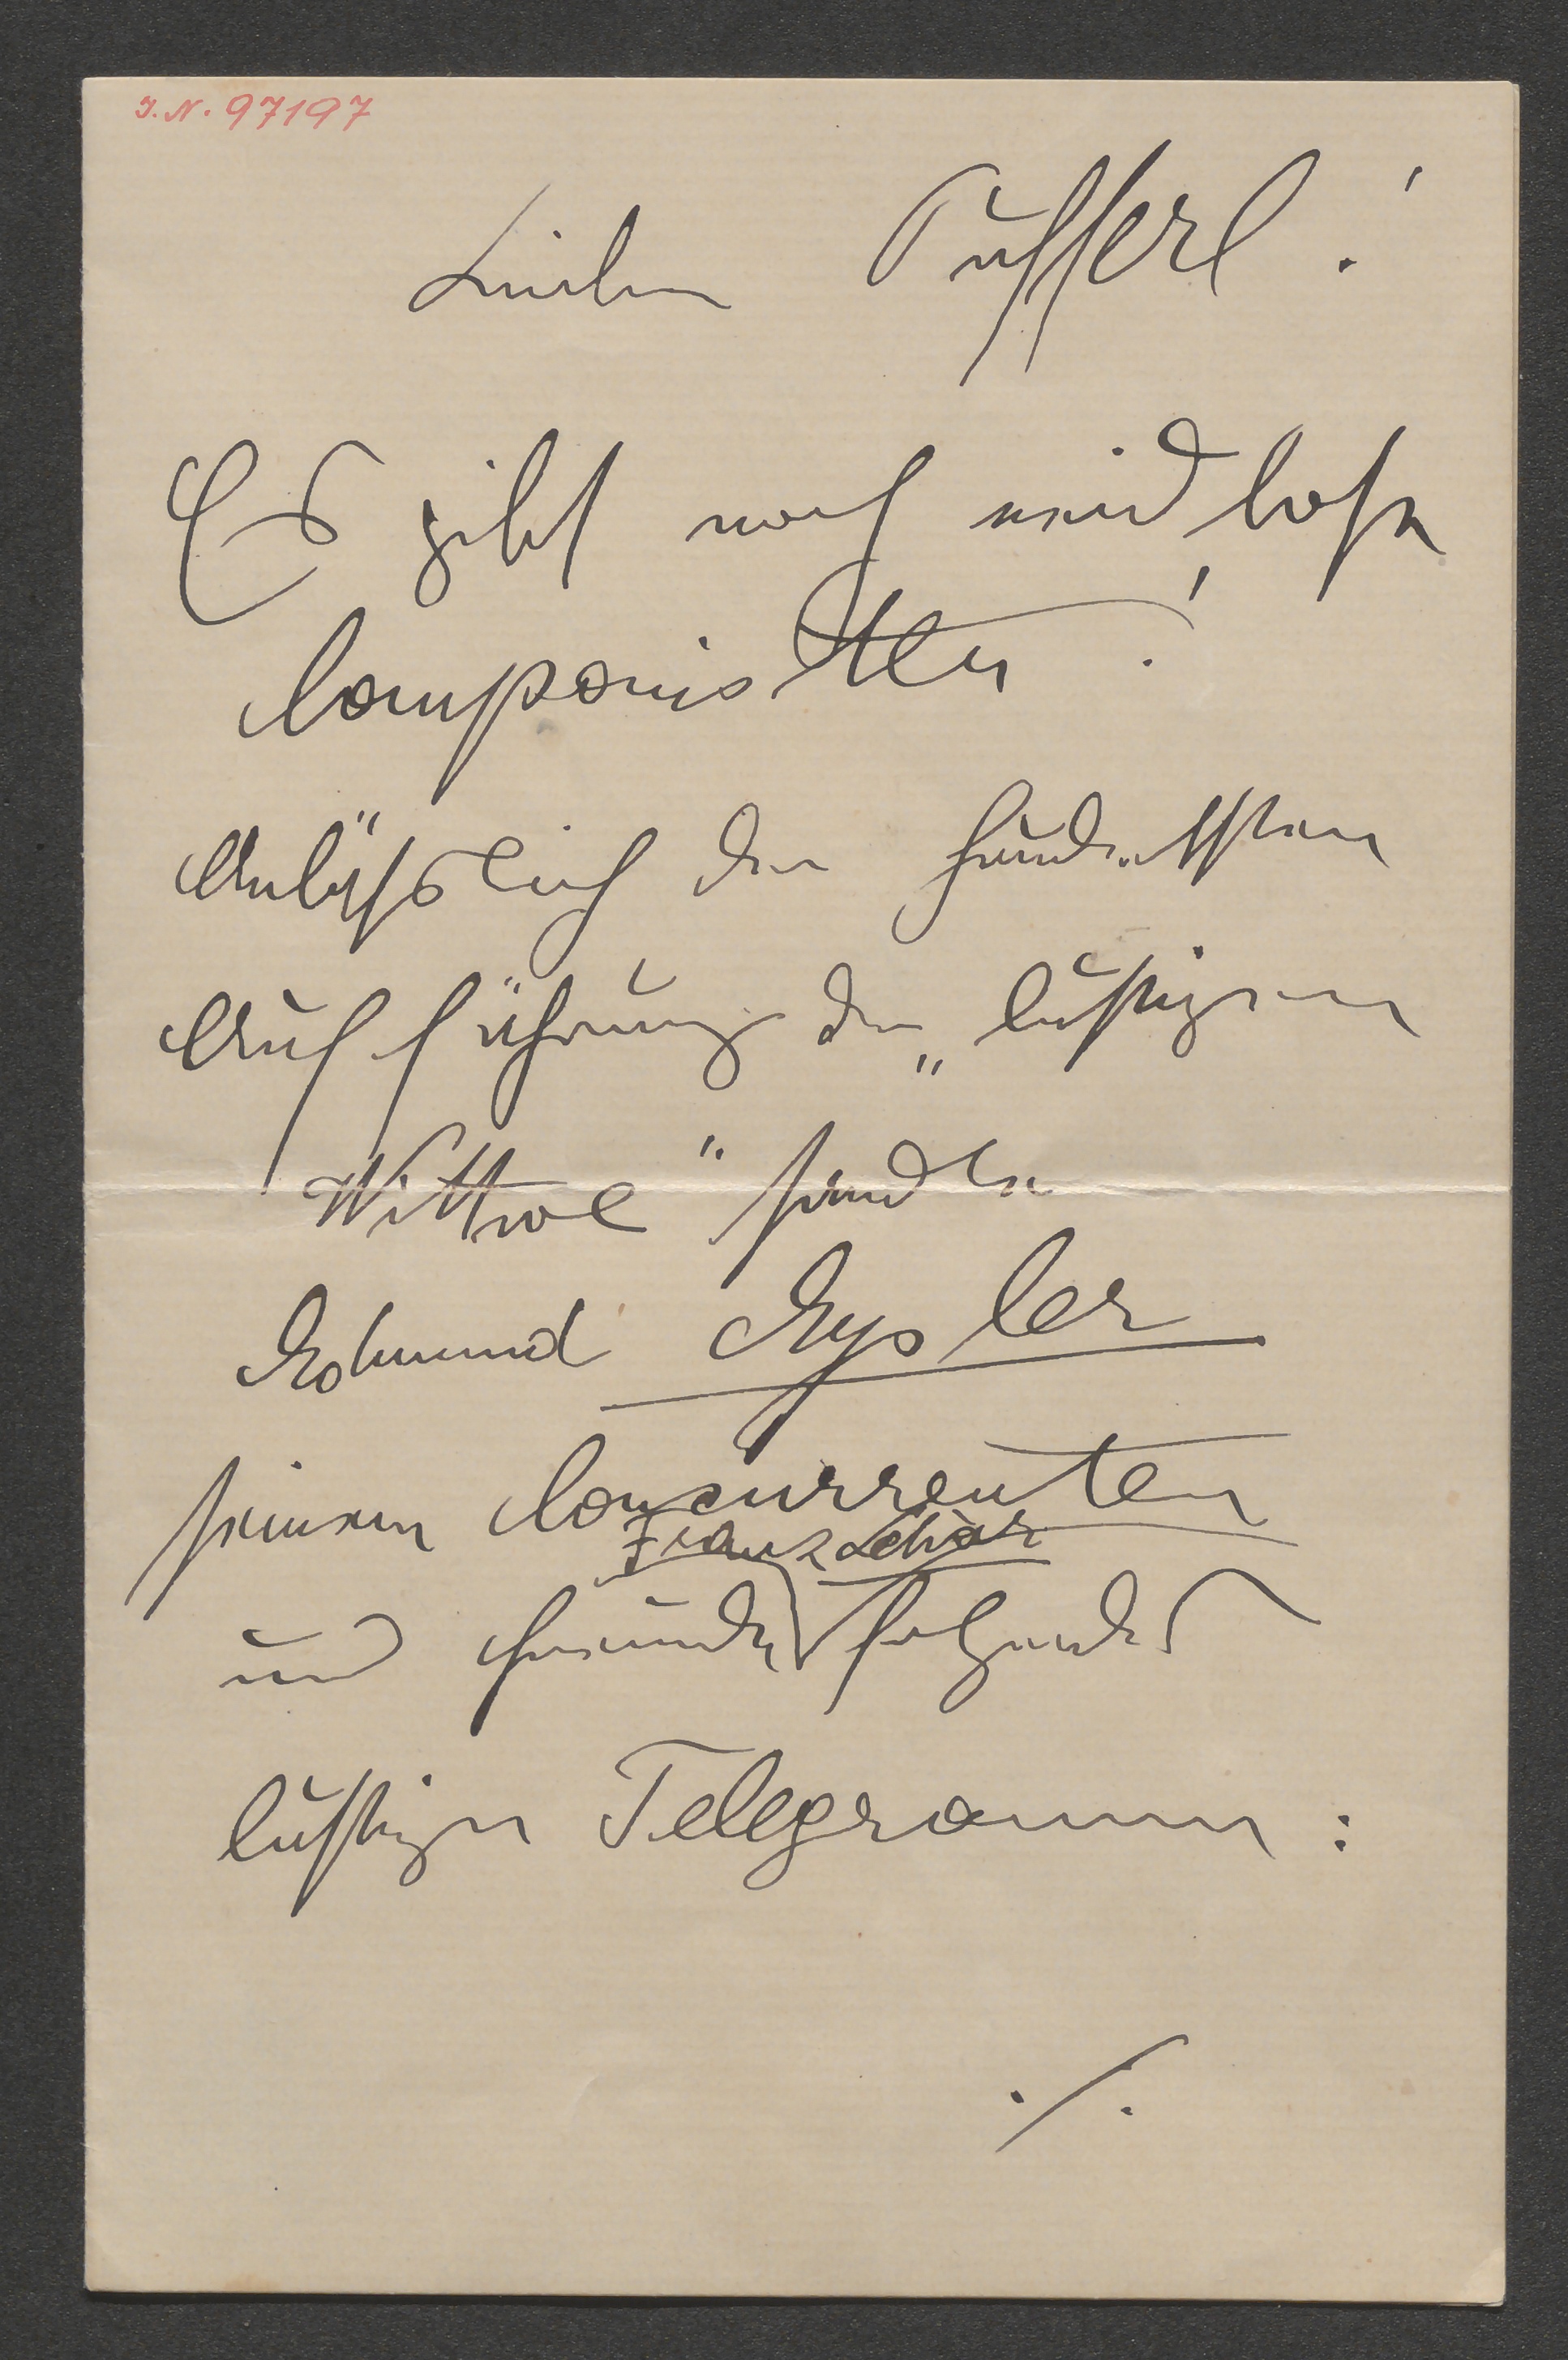 I.N. 97197
Lieber Pufferl!
Es gibt noch neidlose
Componisten!
Anläßlich der hundertsten
Aufführung der „lustigen
Wittwe" sandte
Edmund Eysler
seinem Concurrenten
Franz Lehár
und Freunde folgendes
lustige Telegramm:
./.